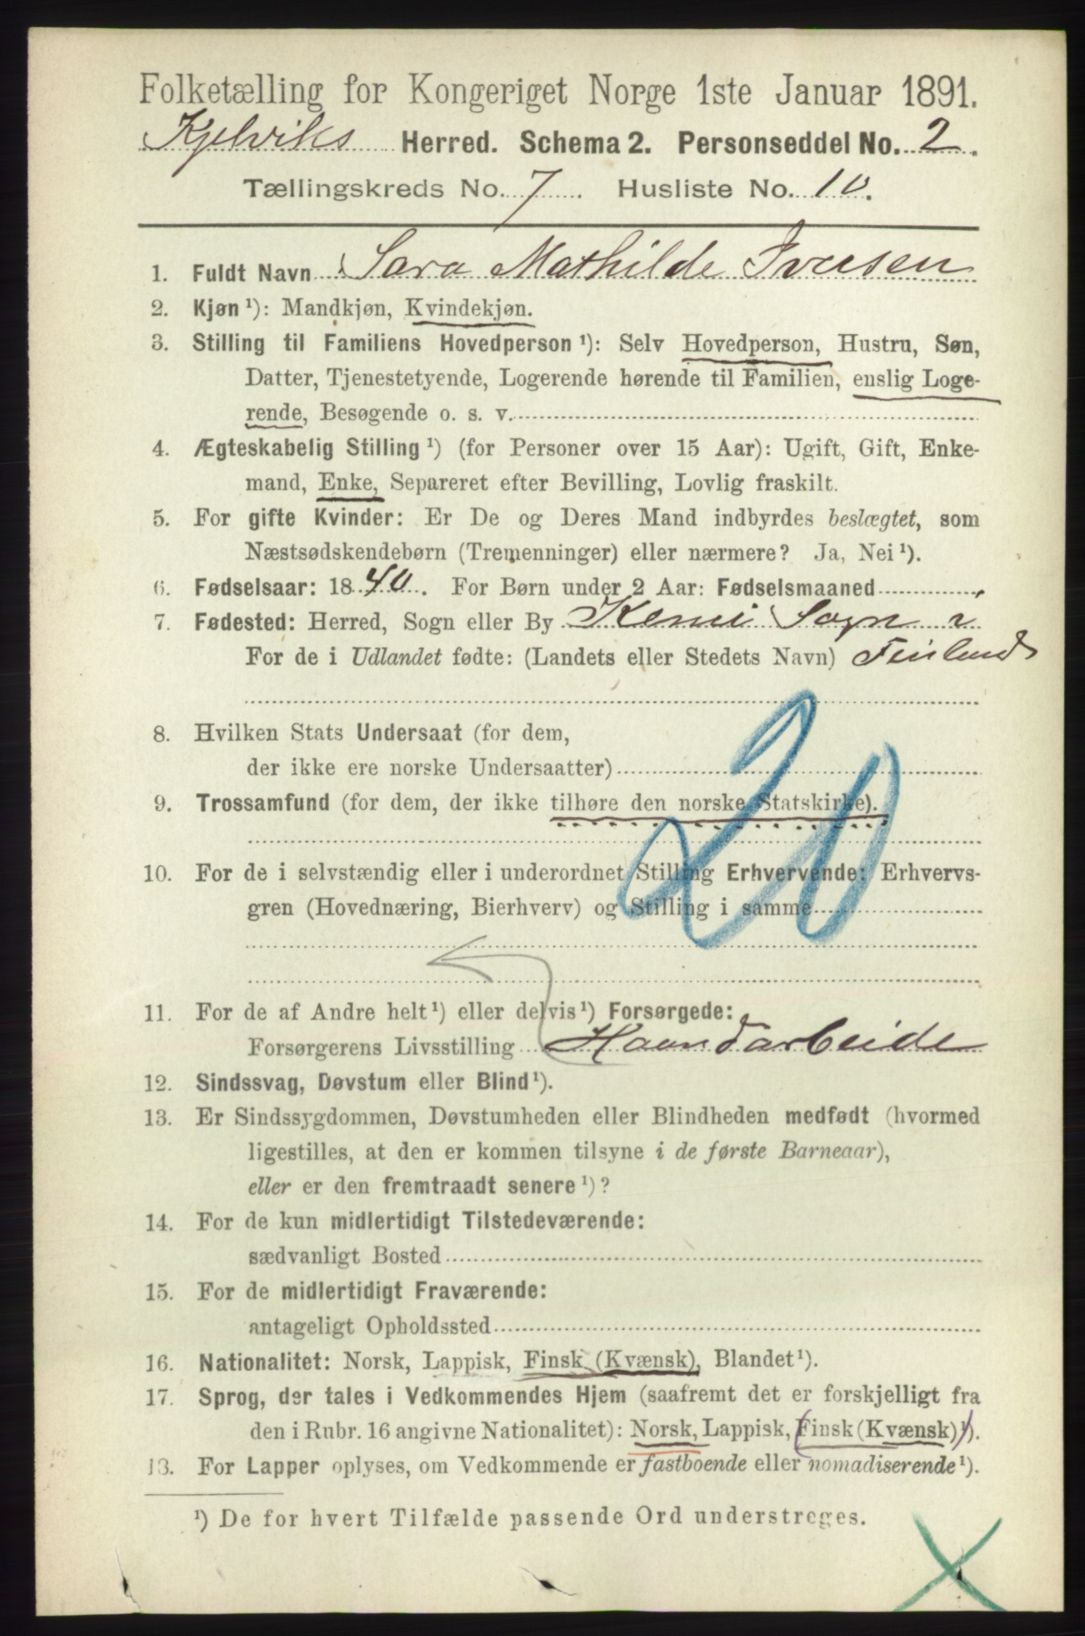 Folketælling for Kongeriget Norge 1ste Januar 1891.
Kjelviks Herred. Schema 2. Personseddel No. 2.
Tællingskreds No. 7. Husliste No. 10.
1. Fuldt Navn Sara Mathilde Iversen
2. Kjøn ¹): Mandkjøn, Kvindekjøn.
3. Stilling til Familiens Hovedperson ¹): Selv Hovedperson, Hustru, Søn,
Datter, Tjenestetyende, Logerende hørende til Familien, enslig Loge-
rende, Besøgende o. s. v.
4. Ægteskabelig Stilling ¹) (for Personer over 15 Aar): Ugift, Gift, Enke-
mand, Enke, Separeret efter Bevilling, Lovlig fraskilt.
5. For gifte Kvinder: Er De og Deres Mand indbyrdes beslægtet, som
Næstsødskendebørn (Tremenninger) eller nærmere? Ja, Nei ¹).
6. Fødselsaar: 1840. For Børn under 2 Aar: Fødselsmaaned
7. Fødested: Herred, Sogn eller By Kemi Sogn i
For de i Udlandet fødte: (Landets eller Stedets Navn) Finland
8. Hvilken Stats Undersaat (for dem,
der ikke ere norske Undersaatter)
9. Trossamfund (for dem, der ikke tilhøre den norske Statskirke).
20
10. For de i selvstændig eller i underordnet Stilling Erhvervende: Erhvervs-
gren (Hovednæring, Bierhverv) og Stilling i samme
11. For de af Andre helt ¹) eller delvis ¹) Forsørgede:
Forsørgerens Livsstilling Haandarbeide
12. Sindssvag, Døvstum eller Blind ¹).
13. Er Sindssygdommen, Døvstumheden eller Blindheden medfødt (hvormed
ligestilles, at den er kommen tilsyne i de første Barneaar),
eller er den fremtraadt senere ¹)?
14. For de kun midlertidigt Tilstedeværende:
sædvanligt Bosted
15. For de midlertidigt Fraværende:
antageligt Opholdssted
16. Nationalitet: Norsk, Lappisk, Finsk (Kvænsk), Blandet ¹).
17. Sprog, der tales i Vedkommendes Hjem (saafremt det er forskjelligt fra
den i Rubr. 16 angivne Nationalitet): Norsk, Lappisk, Finsk (Kvænsk) ¹).
18. For Lapper oplyses, om Vedkommende er fastboende eller nomadiserende ¹).
¹) De for hvert Tilfælde passende Ord understreges.